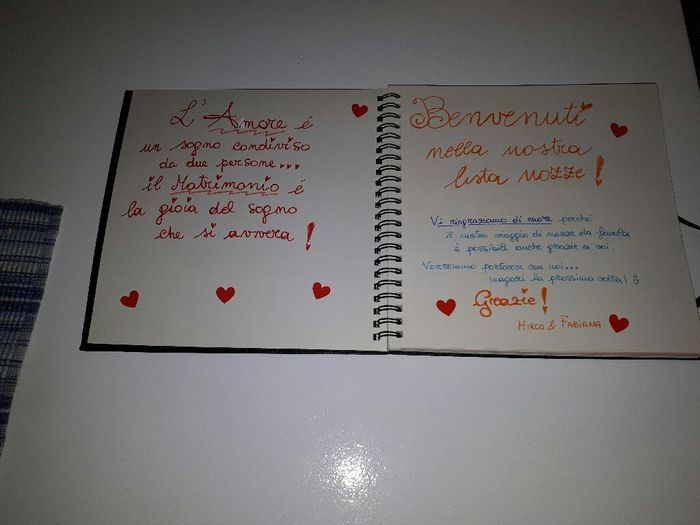 L'Amore é
un sogno condiviso
da due persone...
il Matrimonio é
la gioia del sogno
che si avvera!
Benvenuti
nella nostra
lista nozze!
Vi ringraziamo di cuore perché
il nostro viaggio di nozze da favola
é possibile anche grazie a voi.
Vorremmo portarvi con noi...
magari la prossima volta! :)
Grazie!
Mirco & Fabiana